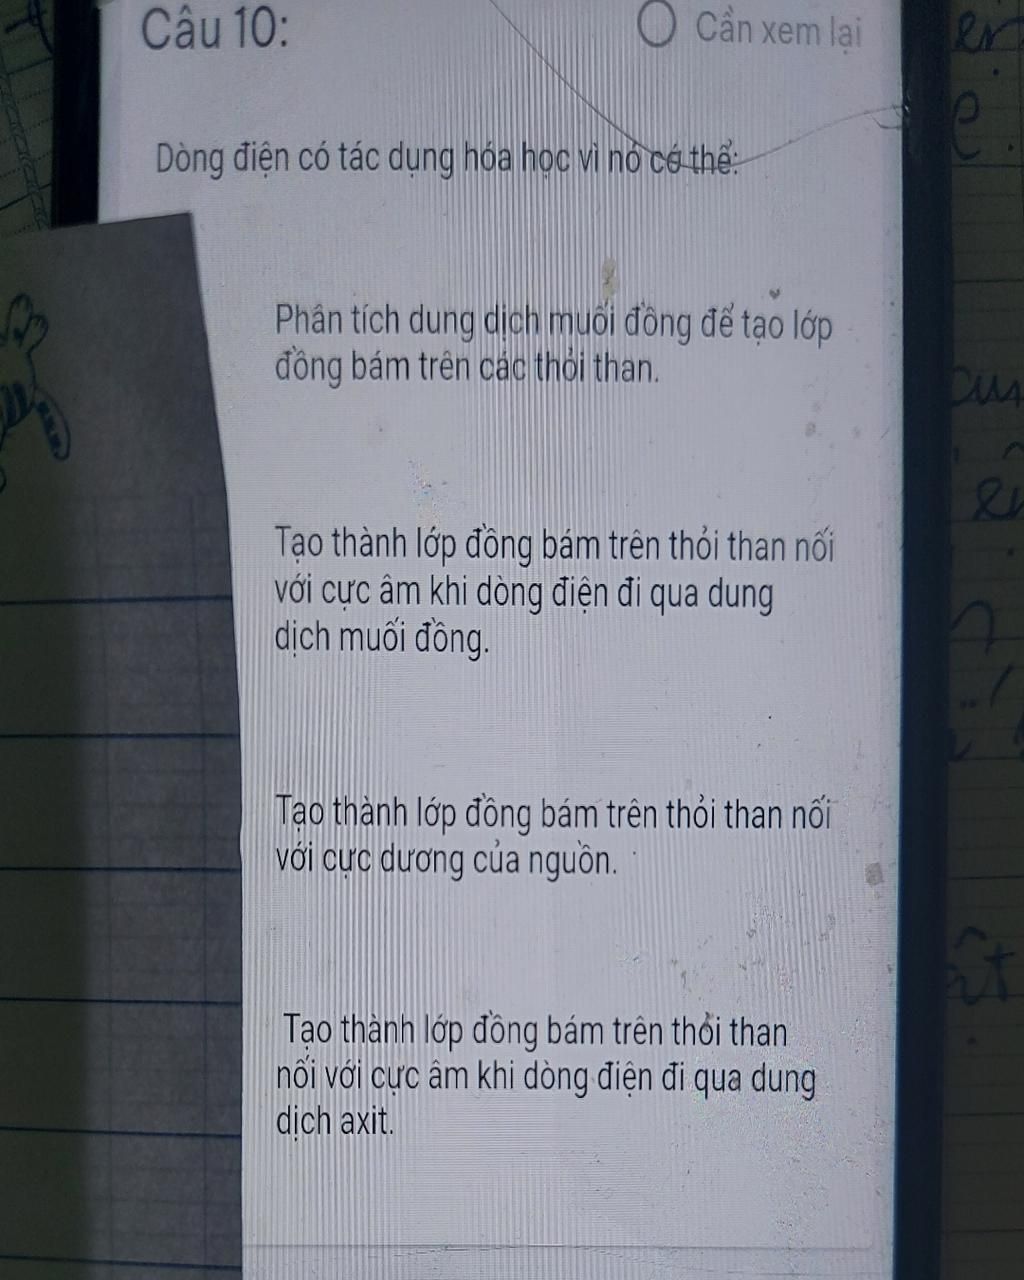 Câu 10:
Cần xem lại
Dòng điện có tác dụng hóa học vì nó có thể:
Phân tích dung dịch muối đồng để tạo lớp
đồng bám trên các thỏi than.
Tạo thành lớp đồng bám trên thỏi than nối
với cực âm khi dòng điện đi qua dung
dịch muối đồng.
Tạo thành lớp đồng bám trên thỏi than nối
với cực dương của nguồn.
Tạo thành lớp đồng bám trên thỏi than
nối với cực âm khi dòng điện đi qua dung
dịch axit.